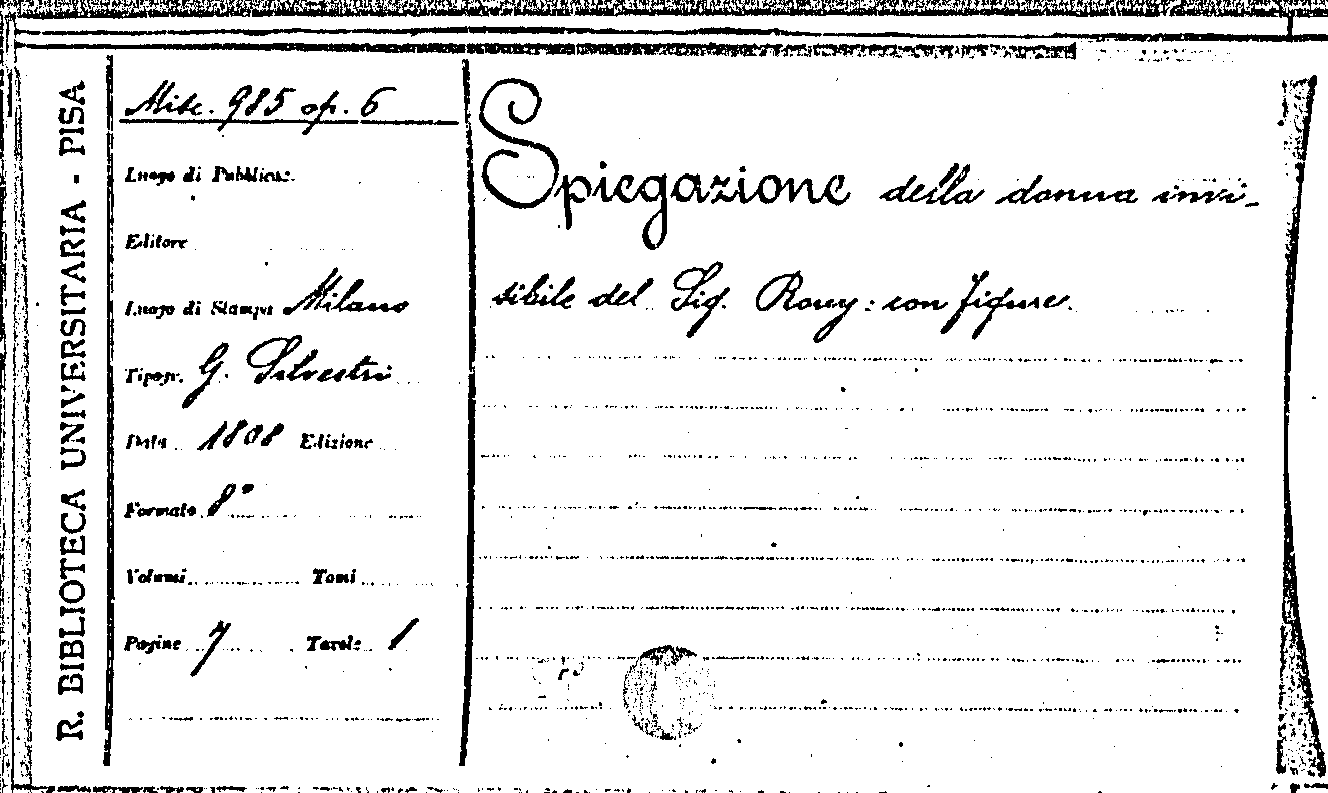 R. BIBLIOTECA UNIVERSITARIA - PISA
Misc. 985 op. 6
Luogo di Pubblicaz.
Editore
Luogo di Stampa Milano
Tipogr. G. Silvestri
Data 1808 Edizione
Formato 8°
Volumi Tomi
Pagine 7 Tavole 1
Spiegazione della donna invi-
sibile del Sig. Rouy: con figure.